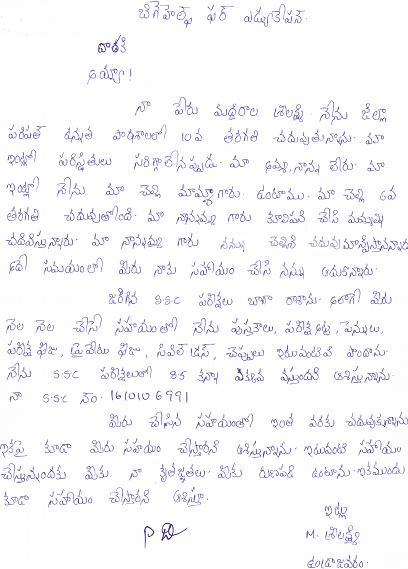 బిగ్ హెల్ప్ ఫర్ ఎడ్యుకేషన్.
వారికి
అయ్యా!
నా పేరు మద్దిరాల శ్రీలక్ష్మి నేను జిల్లా
పరిషత్ ఉన్నత పాఠశాలలో 10వ తరగతి చదువుతున్నాను. మా
ఇంట్లో పరిస్థితులు సరిగ్గాలేనప్పుడు. మా అమ్మ, నాన్న లేరు. మా
ఇంట్లో నేను మా చెల్లి మామ్మగారు. ఉంటాము. మా చెల్లి 6వ
తరగతి చదువుతోంది. మా నాన్నమ్మ గారు కూలిపని చేసి మమ్మల్ని
చదివిస్తున్నారు. మా నాన్నమ్మ గారు నన్ను చెల్లిని చదువు మాన్పిస్తానన్నారు
అదే సమయంలో మీరు నాకు సహాయం చేసి నన్ను ఆదుకొన్నారు.
జరిగిన S.S.C పరీక్షలు బాగా రాశాను. అలాగే మీరు
నెల నెల చేసే సహాయంతో నేను పుస్తకాలు, పరీక్ష అట్ట, పెన్నులు,
పరీక్ష ఫీజు, ప్రైవేటు ఫీజు, సివిల్ డ్రస్, చెప్పులు ఇటువంటివి పొందాను.
నేను S.S.C పరీక్షలలో 85 కన్నా ఎక్కువ వస్తుందని ఆశిస్తున్నాను.
నా S.S.C నెం. 1610106991
మీరు చేసిన సహాయంతో ఇంత వరకు చదువుకున్నాను
ఇకపై కూడా మీరు సహాయం చేస్తారని ఆశిస్తున్నాను. ఇటువంటి సహాయం
చేస్తున్నందుకు మీకు నా కృతజ్ఞతలు. మీకు రుణపడి ఉంటాను. ఇకముందు
కూడా సహాయం చేస్తారని ఆశిస్తూ.
ఇట్లు
M. శ్రీలక్ష్మి
ఉండ్రాజవరం.